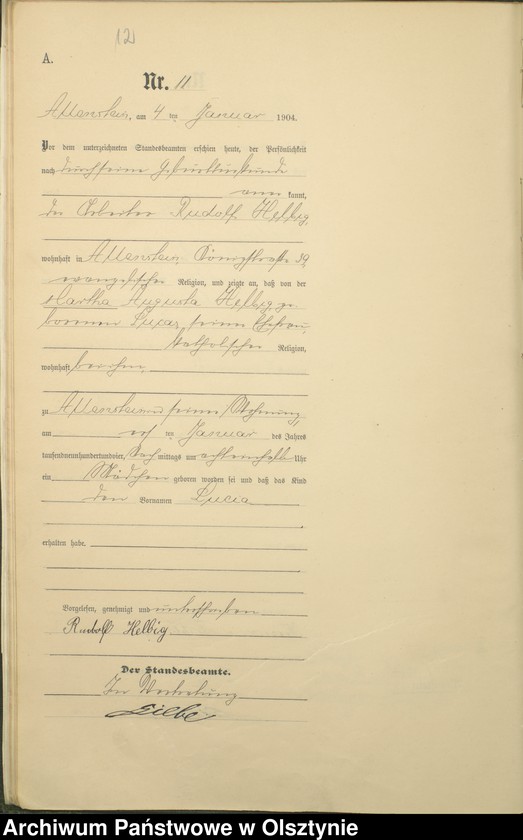 12
A.
Nr. 11
Allenstein, am 4 ten Januar 1904.
Vor dem unterzeichneten Standesbeamten erschien heute, der Persönlichkeit
nach durch seine Geburtsurkunde
anerkannt,
der Arbeiter Rudolf Helbig,
wohnhaft in Allenstein, Königstraße 59,
evangelischer Religion, und zeigte an, daß von der
Martha Augusta Helbig, ge-
borenen seiner Ehefrau,
katholischer Religion,
wohnhaft bei ihm,
zu Allenstein in seiner Wohnung,
am ten Januar des Jahres
tausendneunhundertundvier, Nachmittags um acht einhalb Uhr
ein Mädchen geboren worden sei und daß das Kind
den Vornamen Lucia
erhalten habe.
Vorgelesen, genehmigt und unterschrieben
Rudolf Helbig
Der Standesbeamte.
In Vertretung
Archiwum Państwowe w Olsztynie